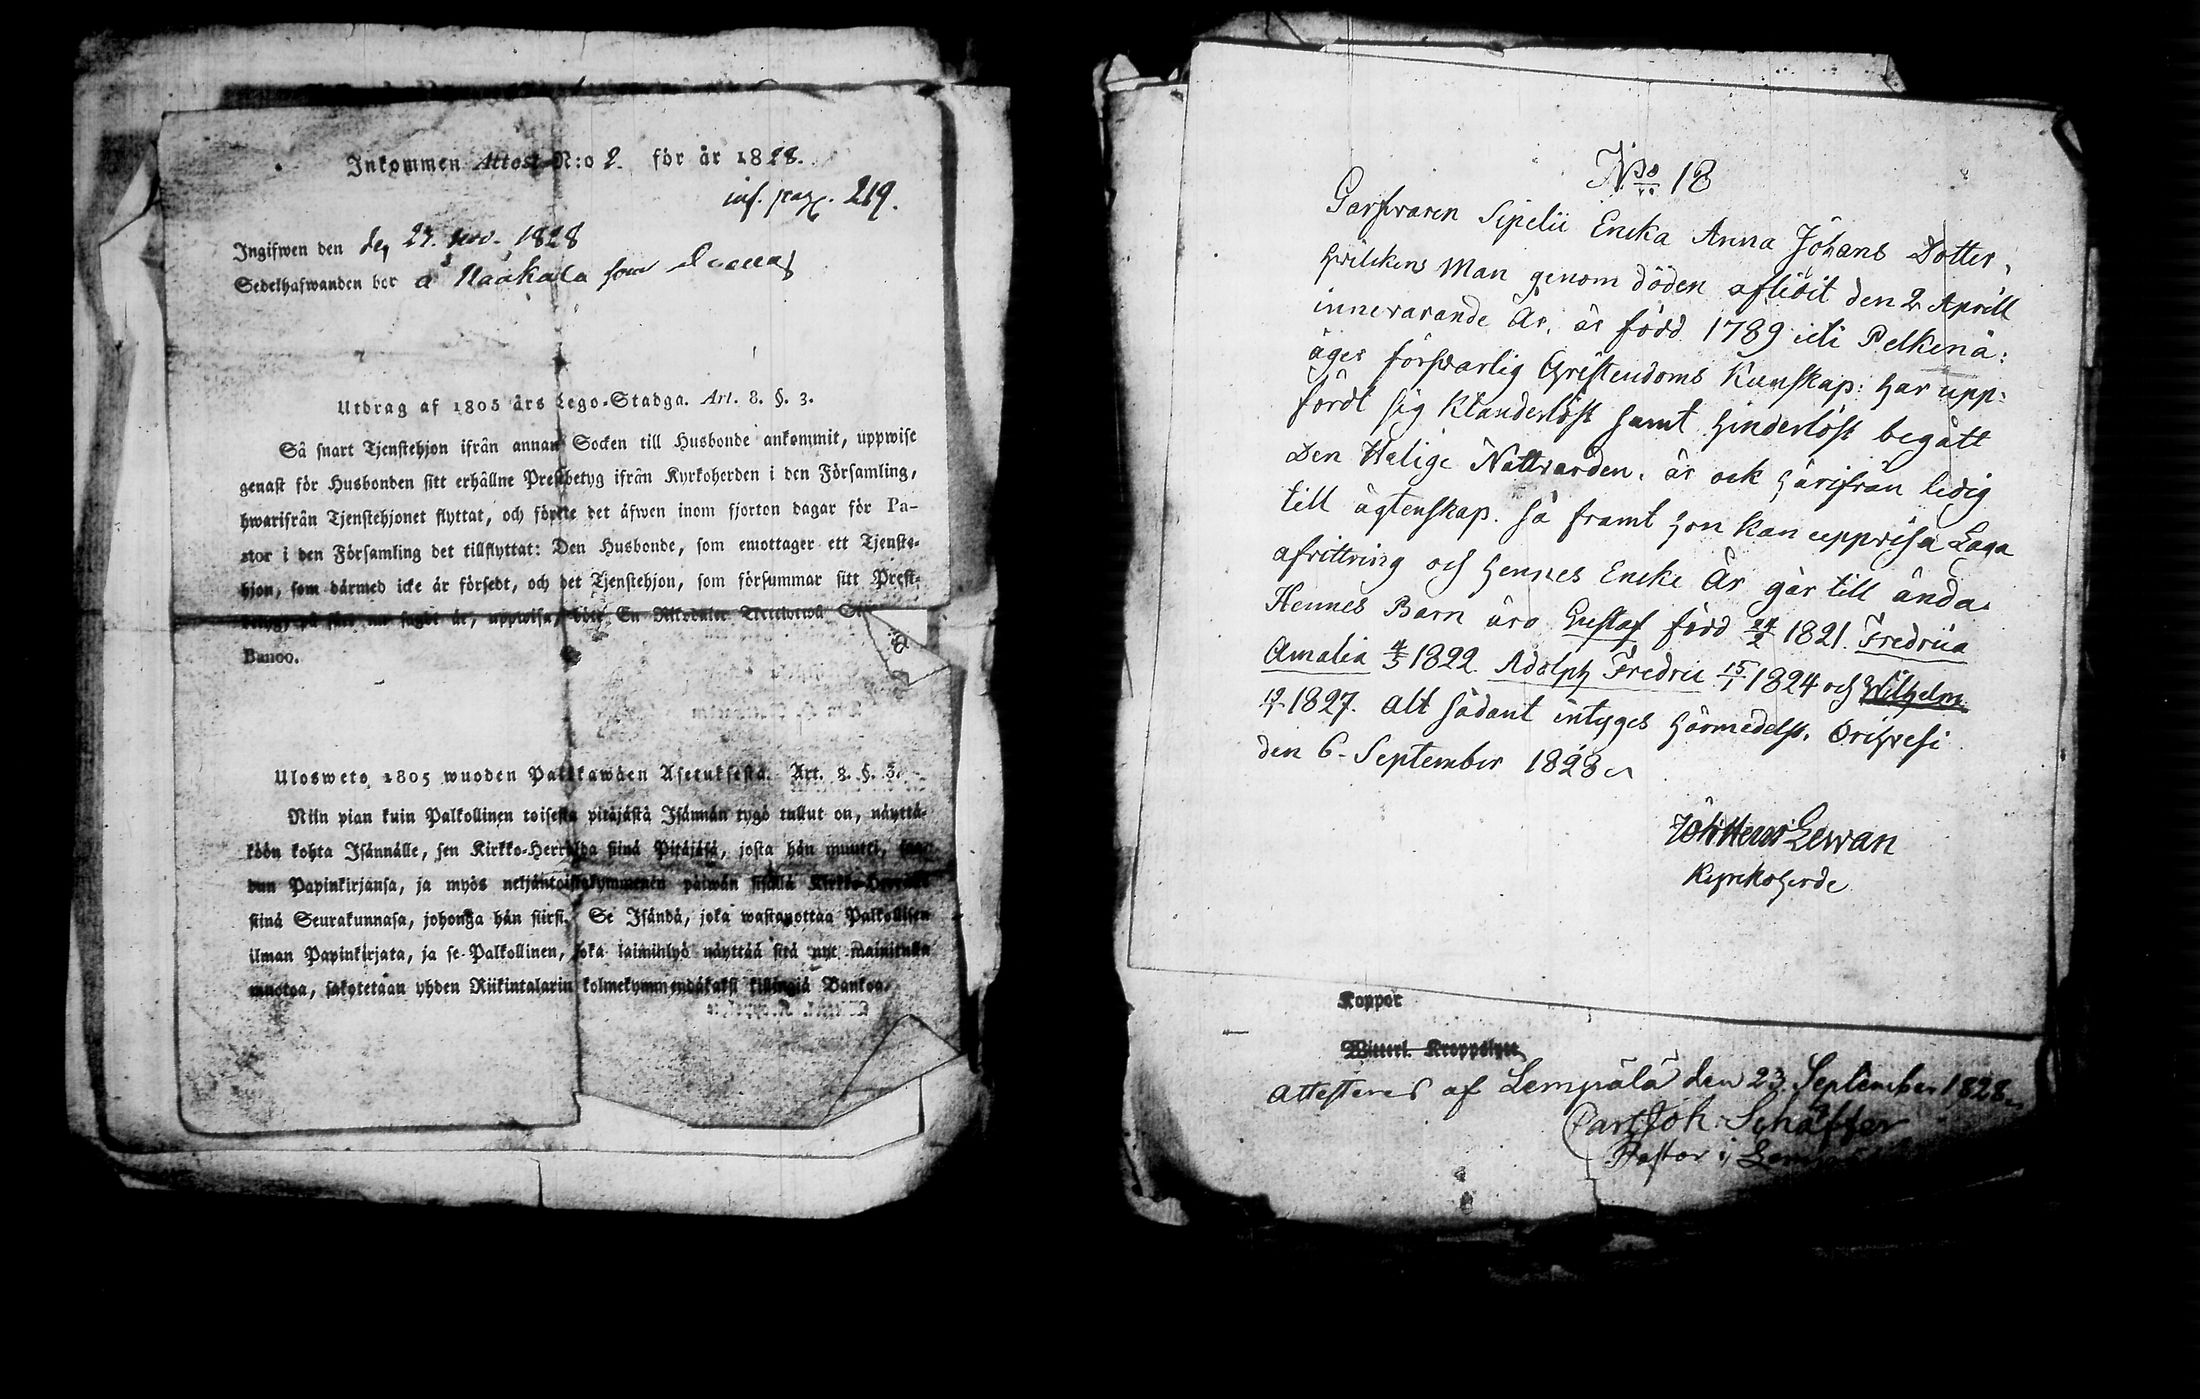 Inkommen Attest N:o 2. för år 1828.
inf. pag. 219.
Ingifwen den 23. nov. 1828
Sedelhafwanden bor å Naakala som
Utdrag af 1805 års Lego-Stadga. Art. 8. §. 3.
Så snart Tjenstehjon ifrån annan Socken till Husbonde ankommit, uppwise
genast för Husbonden sitt erhållne Prestbetyg ifrån Kyrkoherden i den Församling,
hwarifrån Tjenstehjonet flyttat, och förete det äfwen inom fjorton dagar för Pa-
stor i den Församling det tillflyttat: Den Husbonde, som emottager ett Tjenste-
hjon, som därmed icke är försedt, och det Tjenstehjon, som försummar sitt Prest-
betyg, på sätt nu sagdt är, uppwisa, böte En Riksdaler
Banco.
Ulosweto 1805 wuoden Palkkawäen Asetuksesta. Art. 8. §. 3.
Niin pian kuin Palkollinen toisesta pitäjästä Isännän tygö tullut on, näyttä-
köön kohta Isännälle, sen Kirkko-Herralda siinä Pitäjäsä, josta hän muutti, saa-
dun Papinkirjansa, ja myös neljäntoistakymmenen päiwän sisällä Kirkko-Herralle
siinä Seurakunnasa, johonga hän siirsi. Se Isändä, joka wastaanottaa Palkollisen
ilman Papinkirjata, ja se Palkollinen, joka laiminlyö näyttää sitä nyt mainitulla
muotoa, sakotetaan yhden Riikintalarin kolmekymmendäkaksi killingiä Bankoa.
No 18
Garfvaren Sipelii Encka Anna Johans Dotter,
hvilckens Man genom döden aflidit den 2 Aprill
innevarande År, är född 1789 uti Pelkenä:
äger försvarlig Christendoms Kunskap: har upp-
fördt sig Klanderlöst samt hinderlöst begått
Den Helige Nattvarden. är ock härifrån ledig
till ägtenskap. så framt hon kan uppvisa Laga
afvittring och hennes Encke År går till ända.
Hennes Barn äro Gustaf född 24/2 1821. Fredrica
Amalia 4/5 1822. Adolph Fredric 15/1 1824 och Wilhelm
19/7 1827. Alt sådant intyges härmedelst. Orihvesi
den 6 September 1828
Joh Henr Lewan
Kyrckoherde
Koppor
Witterl. Kroppslyte
Attesteras af Lempälä den 23 September 1828.
Carl Joh. Schäffer
Pastor i